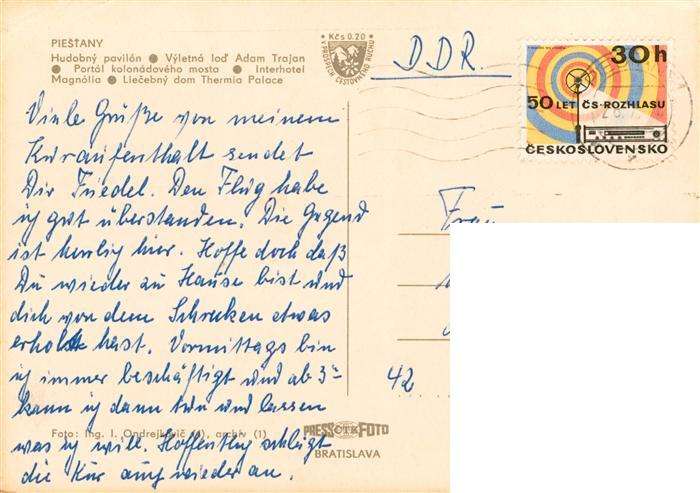 PIEŠŤANY
Hudobný pavilón ● Výletná loď Adam Trajan
● Portál kolonádového mosta ● Interhotel
Magnólia ● Liečebný dom Thermia Palace
Kčs 0.20
DDR.
30h
50 LET ČS. ROZHLASU
ČESKOSLOVENSKO
Viele Grüße von meinem
Kuraufenthalt sendet
Dir Friedel. Den Flug habe
ich gut überstanden. Die Gegend
ist herrlich hier. Hoffe doch daß
Du wieder zu Hause bist und
dich von dem Schrecken etwas
erholt hast. Vormittags bin
ich immer beschäftigt und ab 3
kann ich dann tun und lassen
was ich will. Hoffentlich schlägt
die Kur auch wieder an.
Frau
42
Foto: Ing. I. Ondrejkovič (4), archív (1)
PRESSFOTO
BRATISLAVA